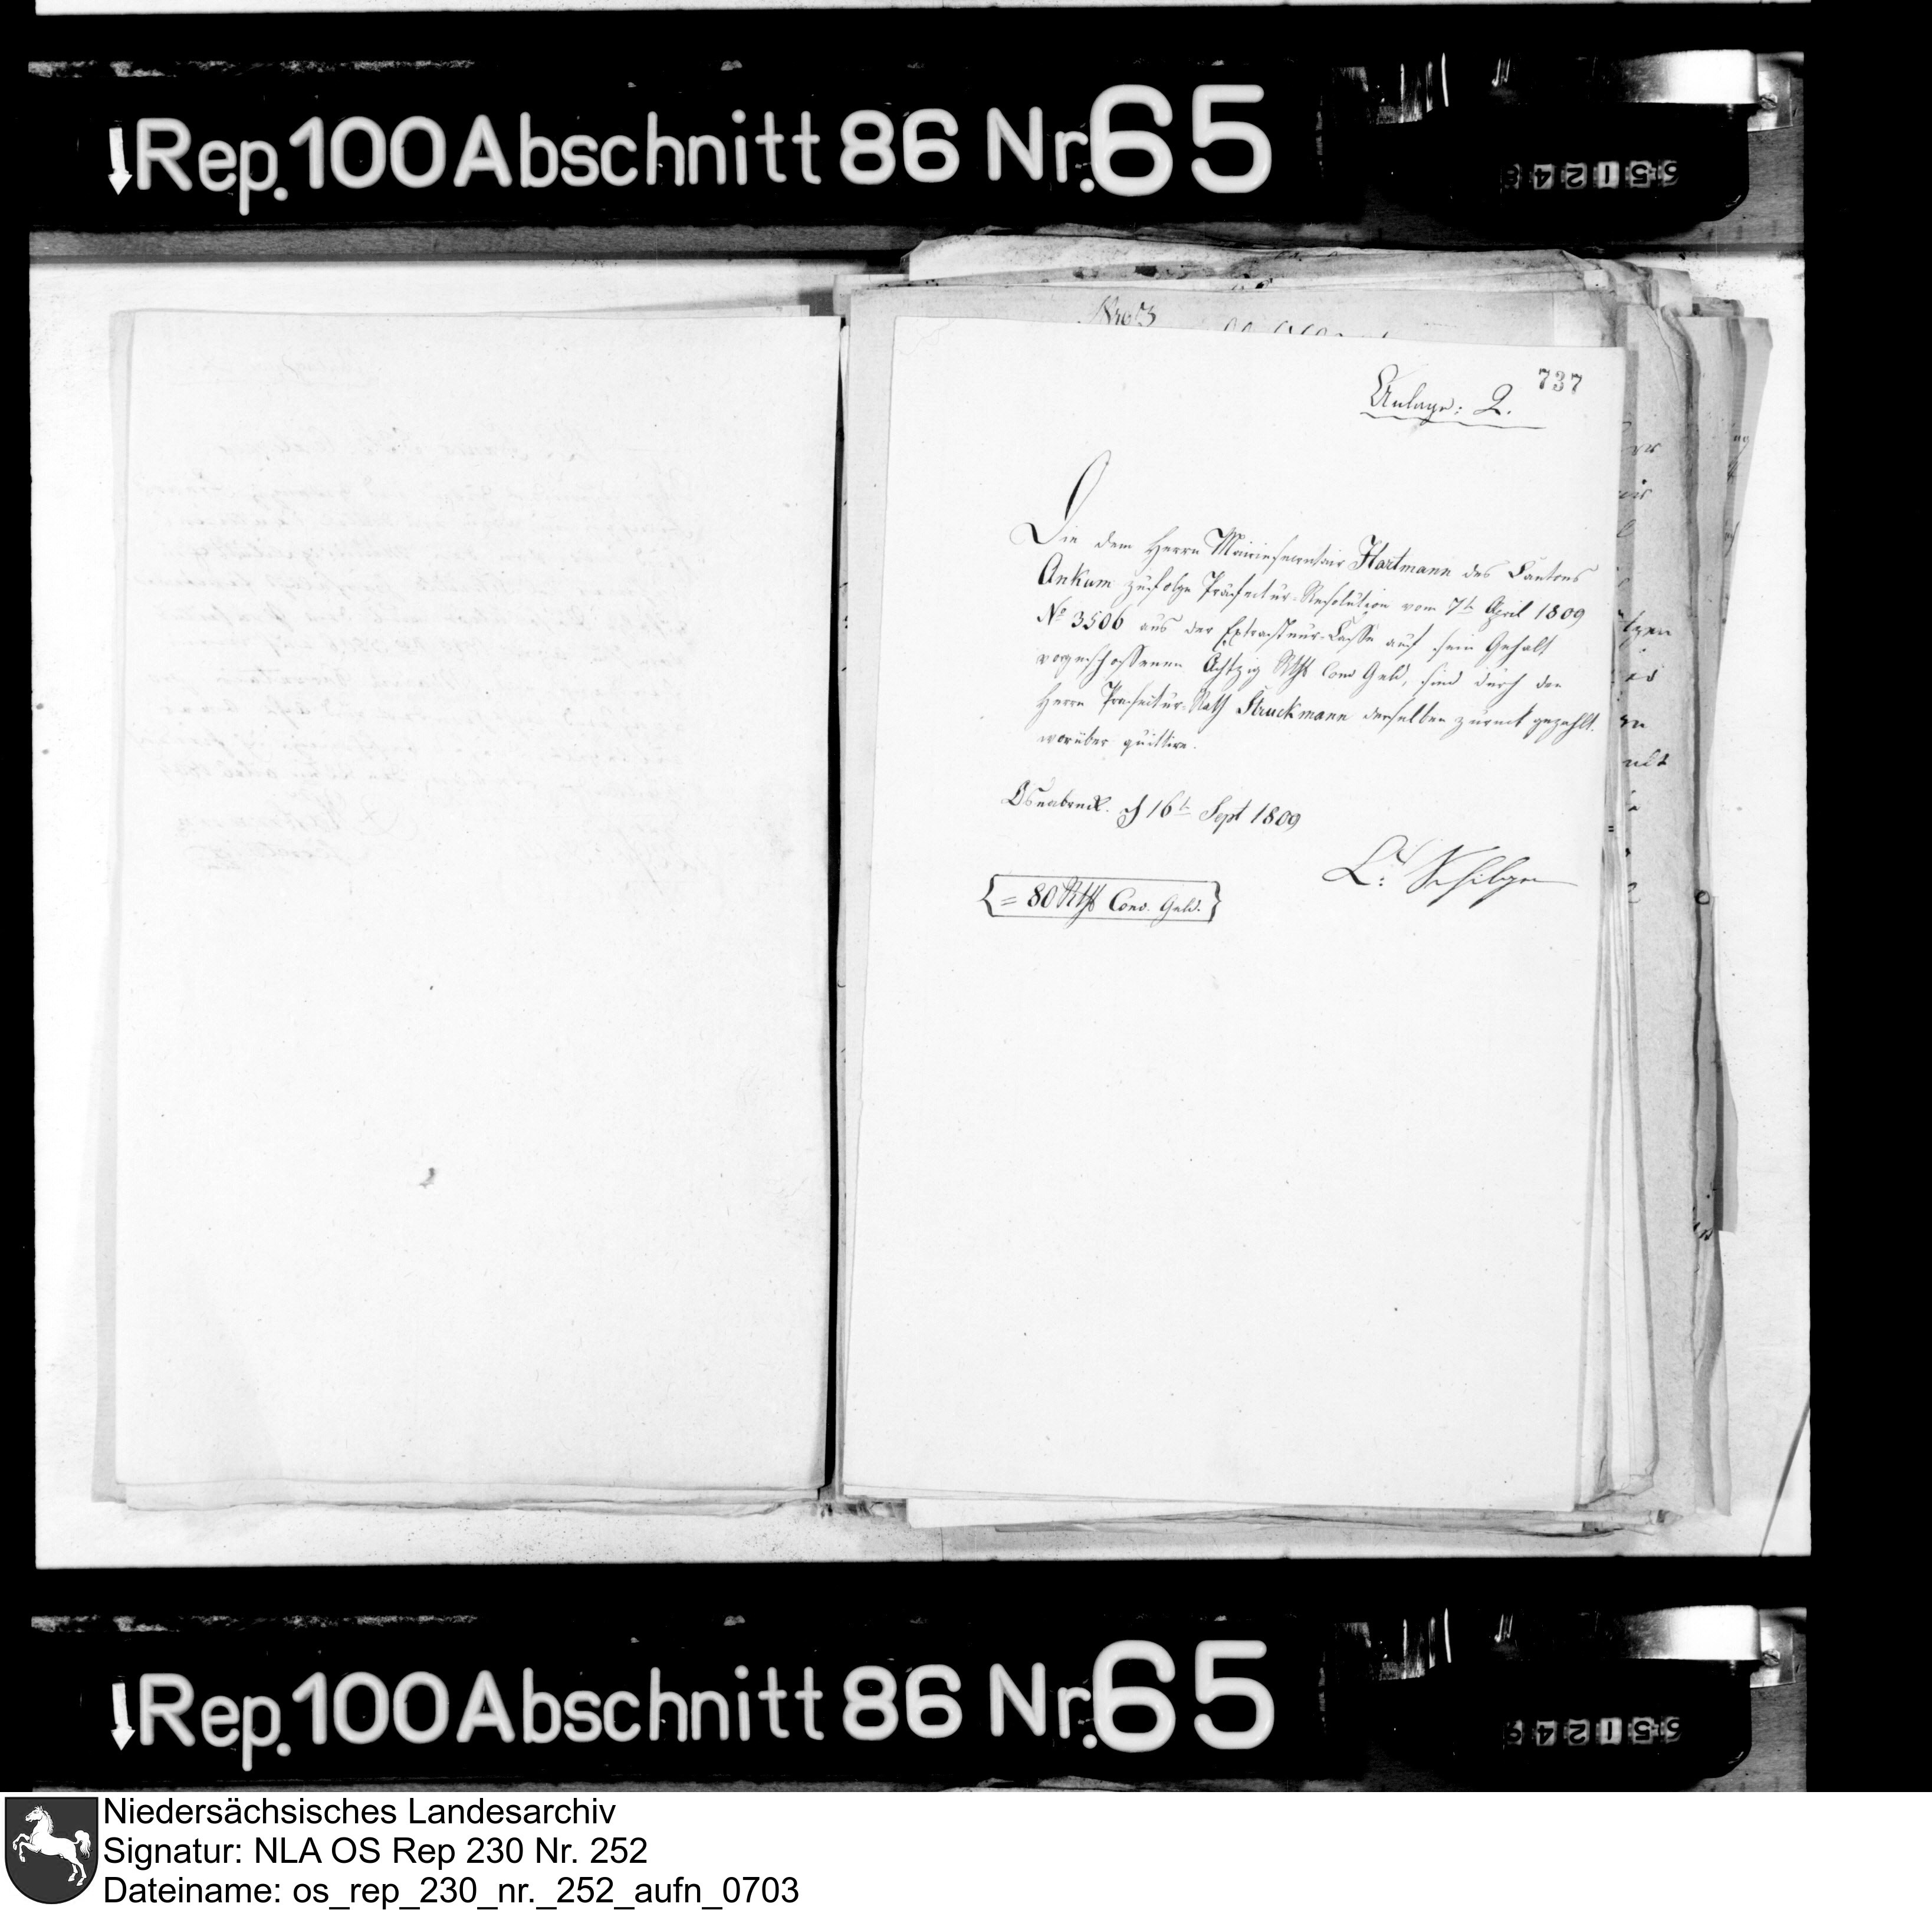 Rep. 100 Abschnitt 86 Nr. 65
737
Anlage: 2.
Die dem Herrn Mairiesecretair Hartmann des Cantons
Ankum zufolge Präfectur-Resolution vom 7t April 1809
No 3506 aus der Extraordinair-Casse auf sein Gehalt
vorgeschossenen Achtzig Rthl Conv Geld, sind durch den
Herrn Praefectur-Rath Struckmann derselben zurück gezahlt.
worüber quittire.
Osnabrück. d 16t Sept 1809
= 80 Rthl Conv. Geld.
Rep. 100 Abschnitt 86 Nr. 65
Niedersächsisches Landesarchiv
Signatur: NLA OS Rep 230 Nr. 252
Dateiname: os_rep_230_nr._252_aufn_0703